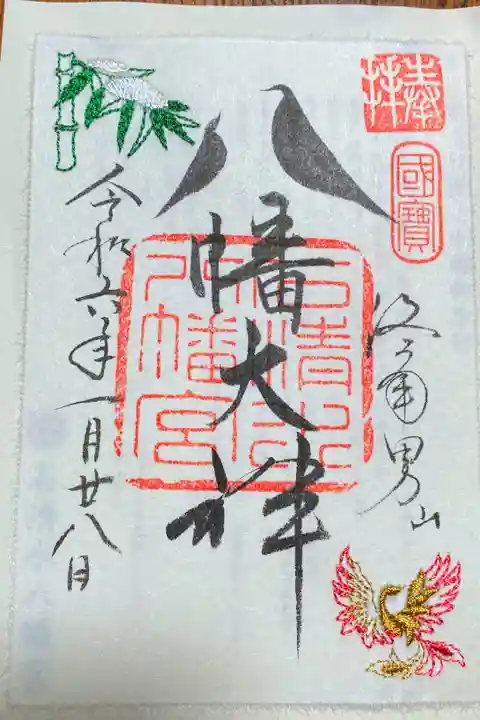 奉拝
國寶
洛南男山
八幡大神
石清水
八幡宮
令和六年一月廿八日